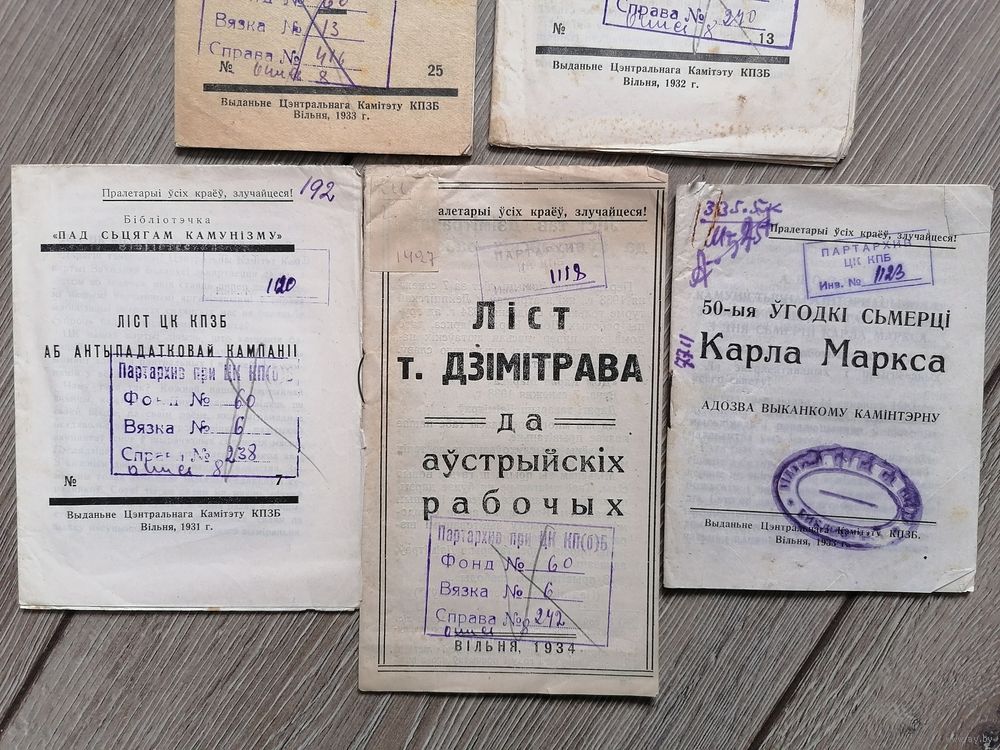 Фонд № 60
Вязка № 13
Справа № 416
опись 8
№ 25
Выданьне Цэнтральнага Камітэту КПЗБ
Вільня, 1933 г.
Справа № 240
опись 8
№ 13
Выданьне Цэнтральнага Камітэту КПЗБ
Вільня, 1932 г.
Пралетарыі ўсіх краёў, злучайцеся!
192
Бібліотэчка
«ПАД СЬЦЯГАМ КАМУНІЗМУ»
1120
ЛІСТ ЦК КПЗБ
АБ АНТЫПАДАТКОВАЙ КАМПАНІІ
Партархив при ЦК КП(б)Б
Фонд № 60
Вязка № 6
Справа № 238
опись 8
№ 7
Выданьне Цэнтральнага Камітэту КПЗБ
Вільня, 1931 г.
алетарыі ўсіх краёў, злучайцеся!
1427
1118
Ліст
т. ДЗІМІТРАВА
да
аўстрыйскіх
рабочых
Партархив при ЦК КП(б)Б
Фонд № 60
Вязка № 6
Справа № 242
опись 8
ВІЛЬНЯ, 1934
335.5к
Пралетарыі ўсіх краёў, злучайцеся!
ПАРТАРХИВ
ЦК КПБ
Инв. № 1123
50-ыя ЎГОДКІ СЬМЕРЦІ
Карла Маркса
АДОЗВА ВЫКАНКОМУ КАМІНТЭРНУ
Выданьне Цэнтральнага Камітэту КПЗБ.
Вільня, 1933 г.